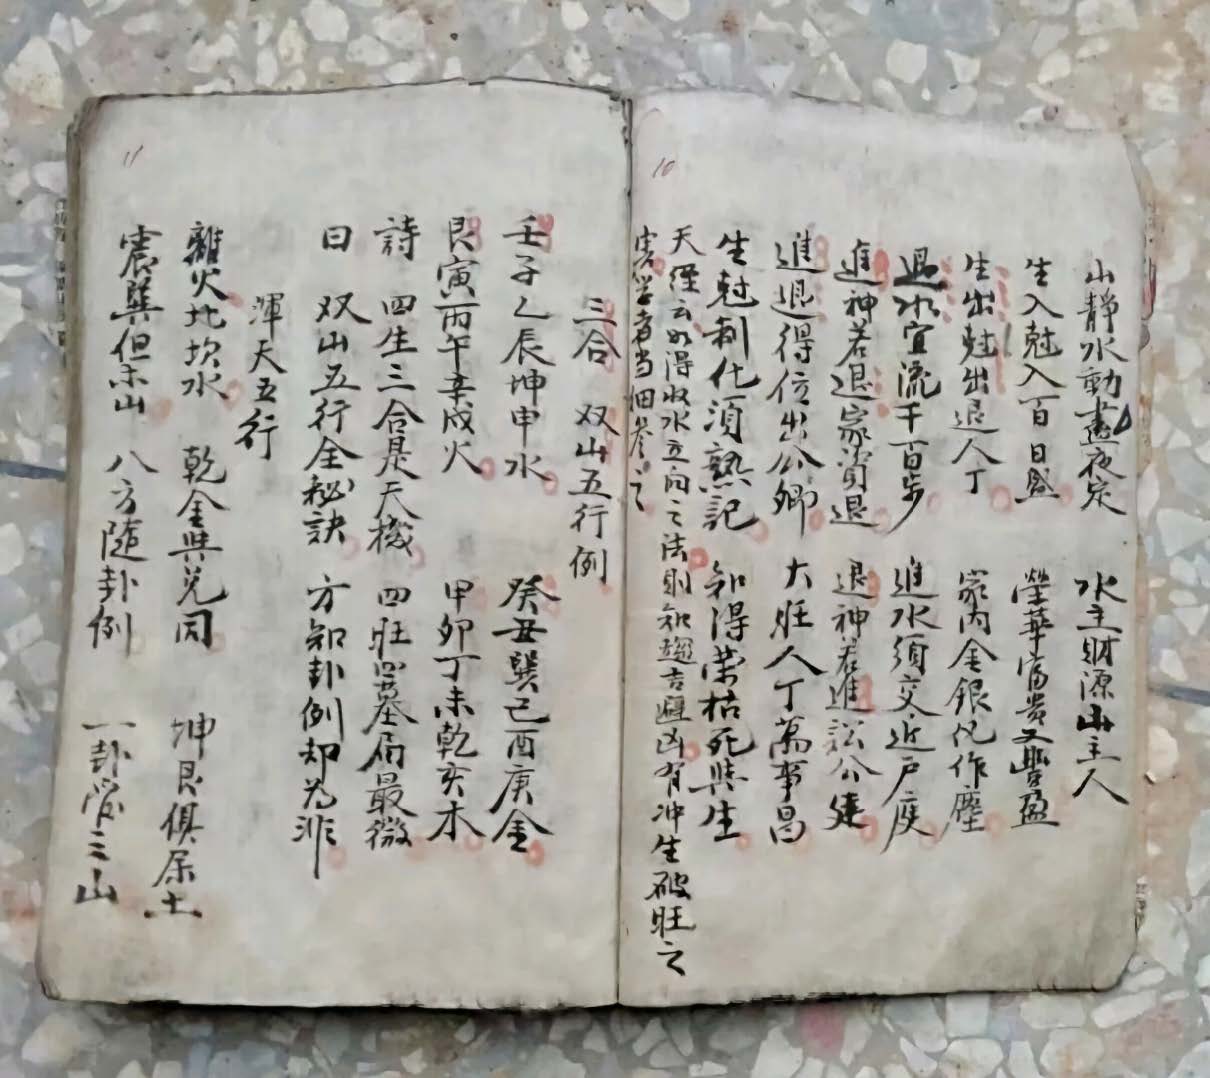 10
山靜水動晝夜定　水主財源山主人
生入尅入百日盛　榮華富貴又豐盈
生出尅出退人丁　家內金銀化作塵
退水宜流千百步　進水須交近戶庭
進神若退家資退　退神若進訟公建
進退得位出公卿　大旺人丁萬事昌
生尅制化須熟記　知得榮枯死與生
天經云如得收水立向之法則知趨吉避凶有冲生破旺之
害学者当細参之
11
三合　双山五行例
壬子乙辰坤申水　癸丑巽巳酉庚金
艮寅丙午辛戌火　甲卯丁未乾亥木
詩　四生三合是天機　四旺四墓局最微
曰　双山五行全秘訣　方知卦例却为非
渾天五行
離火北坎水　乾金與兌同　坤艮俱屬土
震巽但木山　八方随卦例　一卦管三山